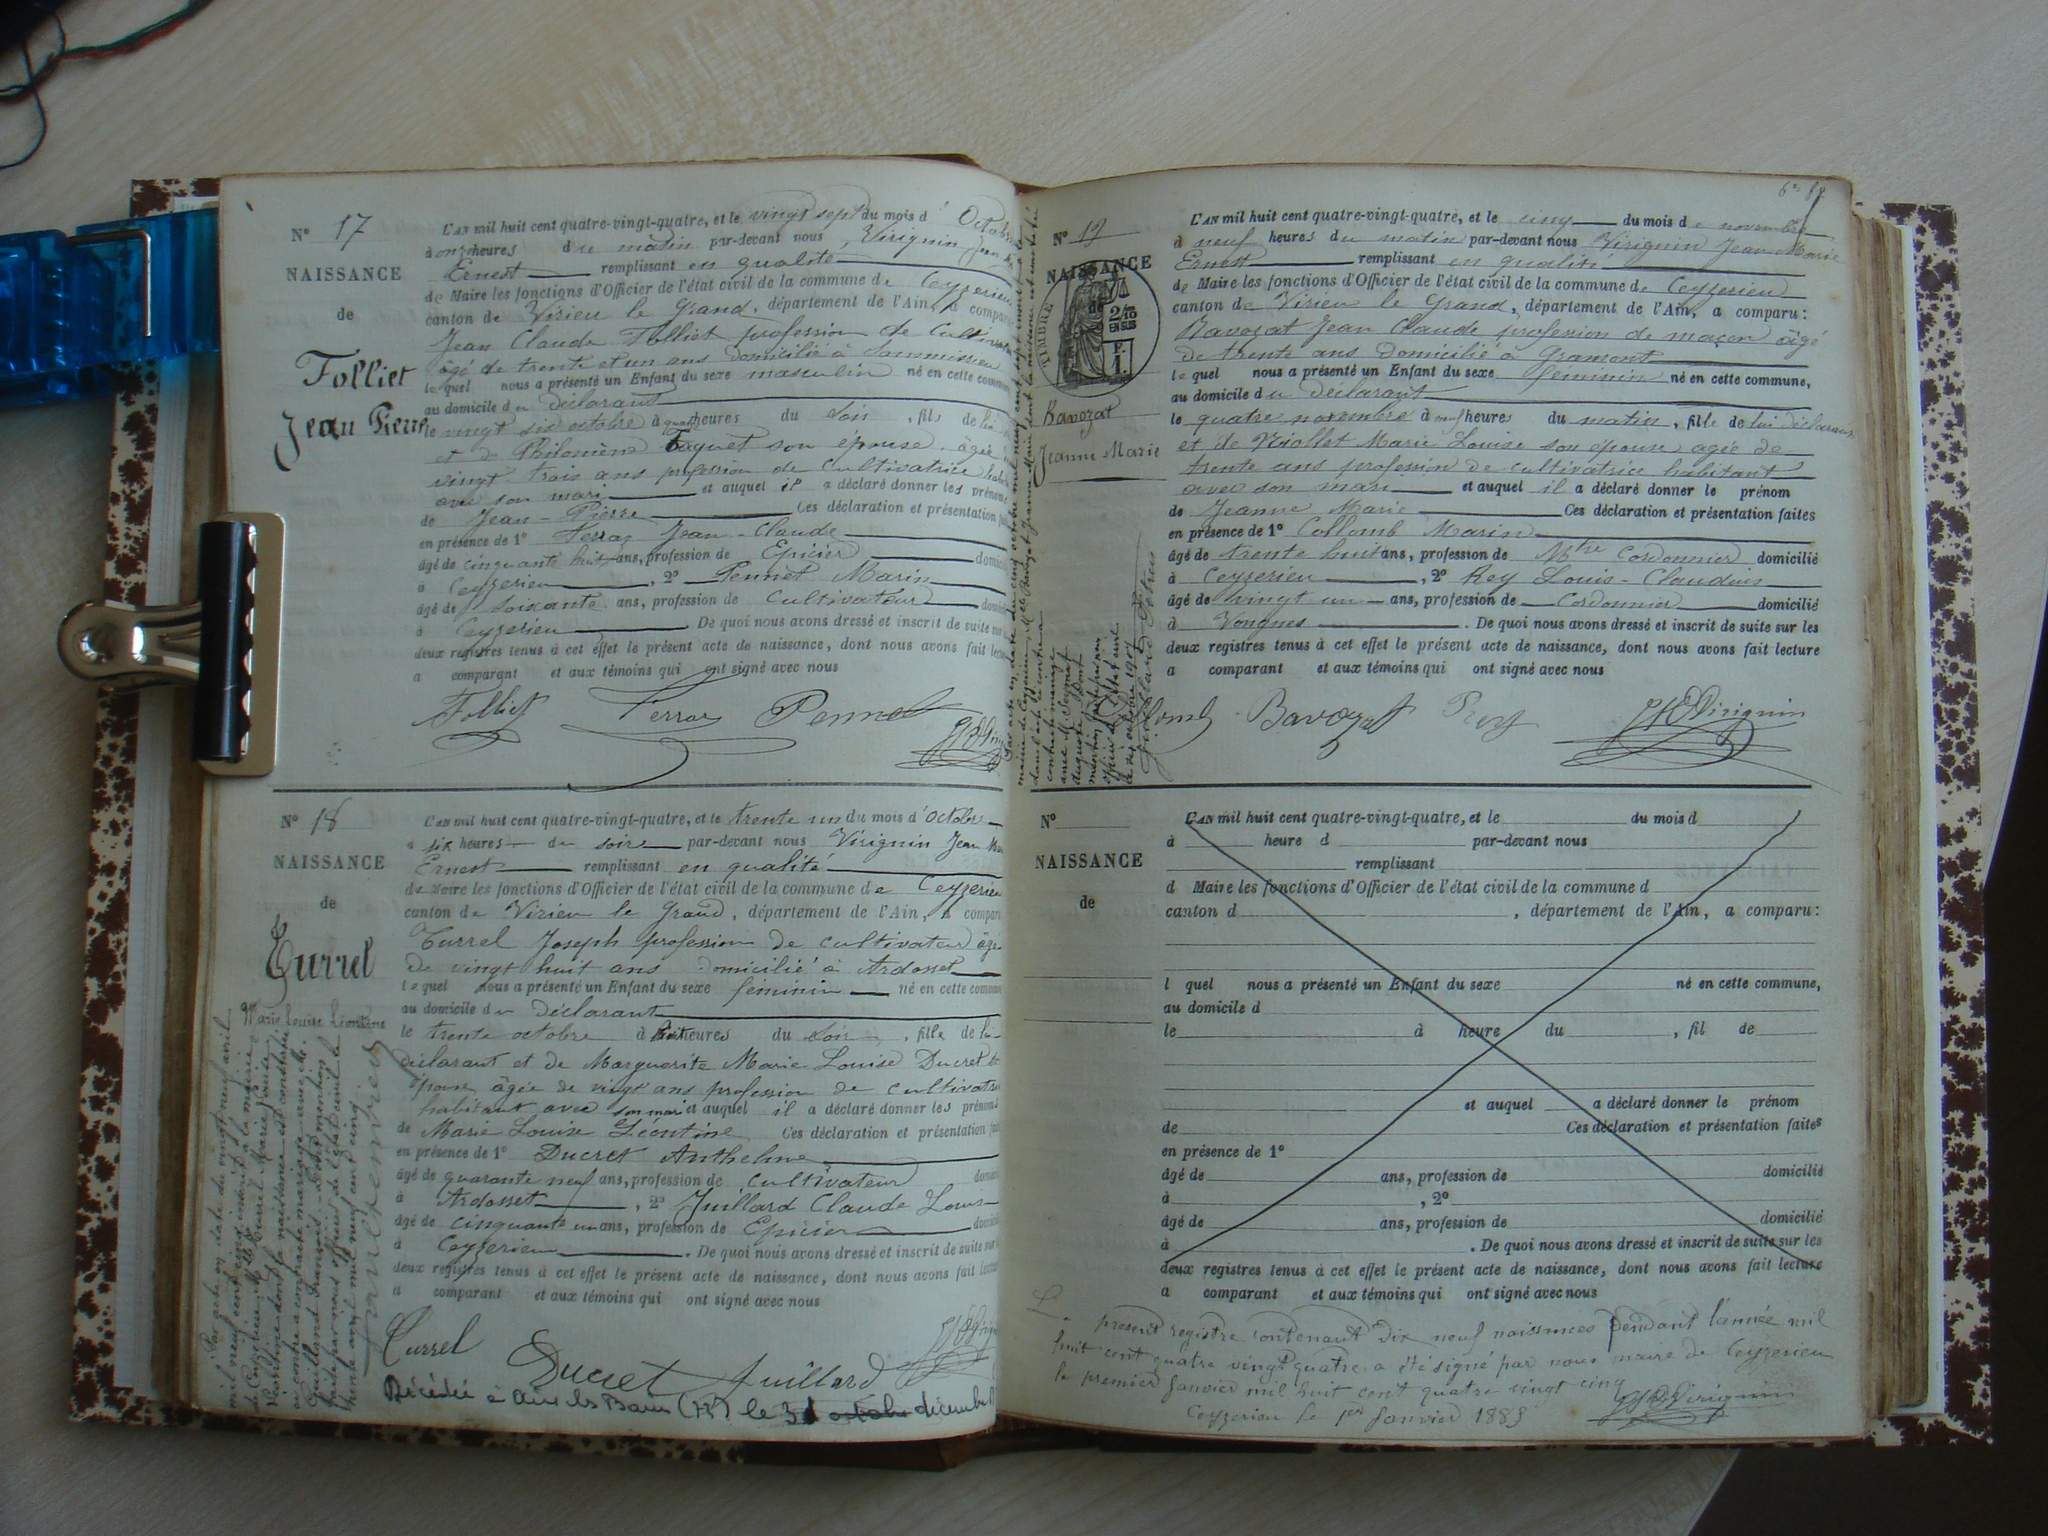 N° 17
NAISSANCE
de
Folliet
Jean Pierre
L'AN mil huit cent quatre-vingt-quatre, et le vingt sept du mois d' Octobre
à onze heures du matin par-devant nous, Virignin Jean
Ernest remplissant en qualité
de Maire les fonctions d'Officier de l'état civil de la commune de Ceyzerieu
canton de Virieu le Grand, département de l'Ain, a comparu
Jean Claude Folliet profession de Cultivateur
âgé de trente et un ans domicilié à Sammissieu
lequel nous a présenté un Enfant du sexe masculin né en cette commune
au domicile du déclarant
le vingt six octobre à heures du soir, fils de lui
et de Philomène Taquet son épouse, âgée
vingt trois ans profession de Cultivatrice
avec son mari et auquel il a déclaré donner les prénoms
de Jean-Pierre Ces déclaration et présentation faites
en présence de 1° Ferraz Jean-Claude
âgé de cinquante huit ans, profession de Epicier domicilié
à Ceyzerieu, 2° Pennet Marin
âgé de soixante ans, profession de Cultivateur
à Ceyzerieu. De quoi nous avons dressé et inscrit de suite sur les
deux registres tenus à cet effet le présent acte de naissance, dont nous avons fait lecture
a comparant et aux témoins qui ont signé avec nous
Folliet Ferraz Pennet
N° 18
NAISSANCE
de
Turrel
Marie Louise Léontine
L'AN mil huit cent quatre-vingt-quatre, et le trente un du mois d'Octobre
à six heures du soire par-devant nous Virignin Jean
Ernest remplissant en qualité
de Maire les fonctions d'Officier de l'état civil de la commune de Ceyzerieu
canton de Virieu le Grand, département de l'Ain, a comparu
Turrel Joseph profession de cultivateur âgé
de vingt huit ans domicilié à Ardosset
lequel nous a présenté un Enfant du sexe féminin né en cette commune
au domicile du déclarant
le trente octobre à heures du soir, fille de lui
déclarant et de Marguerite Marie Louise Ducret
épouse, âgée de vingt ans profession de cultivatrice
habitant avec son mari et auquel il a déclaré donner les prénoms
de Marie Louise Léontine Ces déclaration et présentation faites
en présence de 1° Ducret Anthelme
âgé de quarante neuf ans, profession de cultivateur
à Ardosset, 2° Juillard Claude Louis
âgé de cinquante un ans, profession de Epicier
à Ceyzerieu. De quoi nous avons dressé et inscrit de suite sur les
deux registres tenus à cet effet le présent acte de naissance, dont nous avons fait lecture
a comparant et aux témoins qui ont signé avec nous
Turrel Ducret Juillard
Décédée à Aix les Bains (73) le 31 octobre décembre
N° 19
NAISSANCE
TIMBRE
Bavozat
Jeanne Marie
L'AN mil huit cent quatre-vingt-quatre, et le cinq du mois de novembre
à neuf heures du matin par-devant nous Virignin Jean Marie
Ernest remplissant en qualité
de Maire les fonctions d'Officier de l'état civil de la commune de Ceyzerieu
canton de Virieu le Grand, département de l'Ain, a comparu :
Bavozat Jean Claude profession de maçon âgé
de trente ans domicilié à Gramont
lequel nous a présenté un Enfant du sexe féminin né en cette commune,
au domicile du déclarant
le quatre novembre à neuf heures du matin, fille de lui déclarant
et de Viollet Marie Louise son épouse agée de
trente ans profession de cultivatrice habitant
avec son mari et auquel il a déclaré donner le prénom
de Jeanne Marie Ces déclaration et présentation faites
en présence de 1° Collomb Marin
âgé de trente huit ans, profession de Mtre Cordonnier domicilié
à Ceyzerieu, 2° Rey Louis-Claudius
âgé de vingt un ans, profession de Cordonnier domicilié
à Vongnes. De quoi nous avons dressé et inscrit de suite sur les
deux registres tenus à cet effet le présent acte de naissance, dont nous avons fait lecture
a comparant et aux témoins qui ont signé avec nous
Bavozat Rey Virignin
N°
NAISSANCE
de
L'AN mil huit cent quatre-vingt-quatre, et le du mois d
à heure d par-devant nous
remplissant
d Maire les fonctions d'Officier de l'état civil de la commune d
canton d , département de l'Ain, a comparu :
l quel nous a présenté un Enfant du sexe né en cette commune,
au domicile d
le à heure du , fil de
et auquel a déclaré donner le prénom
de Ces déclaration et présentation faites
en présence de 1°
âgé de ans, profession de domicilié
à , 2°
âgé de ans, profession de domicilié
à . De quoi nous avons dressé et inscrit de suite sur les
deux registres tenus à cet effet le présent acte de naissance, dont nous avons fait lecture
a comparant et aux témoins qui ont signé avec nous
Le présent registre contenant dix neuf naissances pendant l'année mil
huit cent quatre vingt quatre a été signé par nous maire de Ceyzerieu
le premier Janvier mil huit cent quatre vingt cinq
Ceyzerieu le 1er Janvier 1885
Virignin